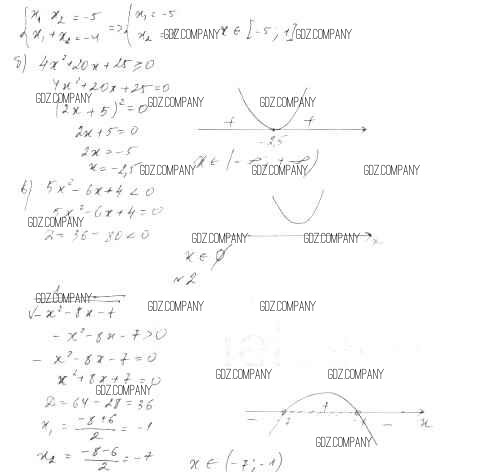 { x₁ x₂ = -5 => { x₁ = -5
{ x₁ + x₂ = -4 { x₂ = x ∈ [-5; 1]
GDZ.COMPANY GDZ.COMPANY
б) 4x² + 20x + 25 ≥ 0
4x² + 20x + 25 = 0
GDZ.COMPANY GDZ.COMPANY GDZ.COMPANY
(2x + 5)² = 0
+ +
2x + 5 = 0
-2,5
2x = -5
x = -2,5 x ∈ (-∞; +∞)
GDZ.COMPANY GDZ.COMPANY GDZ.COMPANY
в) 5x² - 6x + 4 < 0
5x² - 6x + 4 = 0
GDZ.COMPANY
D = 36 - 80 < 0
GDZ.COMPANY GDZ.COMPANY x
x ∈ ∅
№2
GDZ.COMPANY GDZ.COMPANY GDZ.COMPANY
√-x² - 8x - 7
-x² - 8x - 7 > 0
-x² - 8x - 7 = 0
x² + 8x + 7 = 0
GDZ.COMPANY GDZ.COMPANY GDZ.COMPANY
D = 64 - 28 = 36
- -7 + -1 - x
x₁ = (-8+6)/2 = -1
GDZ.COMPANY
x₂ = (-8-6)/2 = -7 x ∈ (-7; -1)